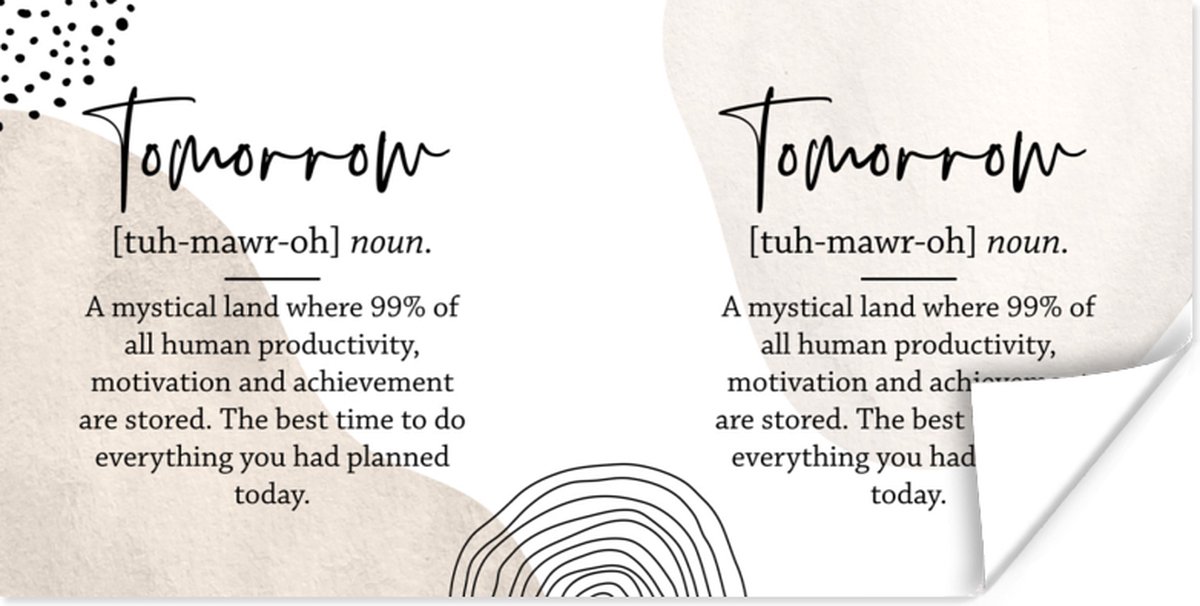 Tomorrow
[tuh-mawr-oh] noun.
A mystical land where 99% of
all human productivity,
motivation and achievement
are stored. The best time to do
everything you had planned
today.
Tomorrow
[tuh-mawr-oh] noun.
A mystical land where 99% of
all human productivity,
motivation and
are stored. The best
everything you had
today.